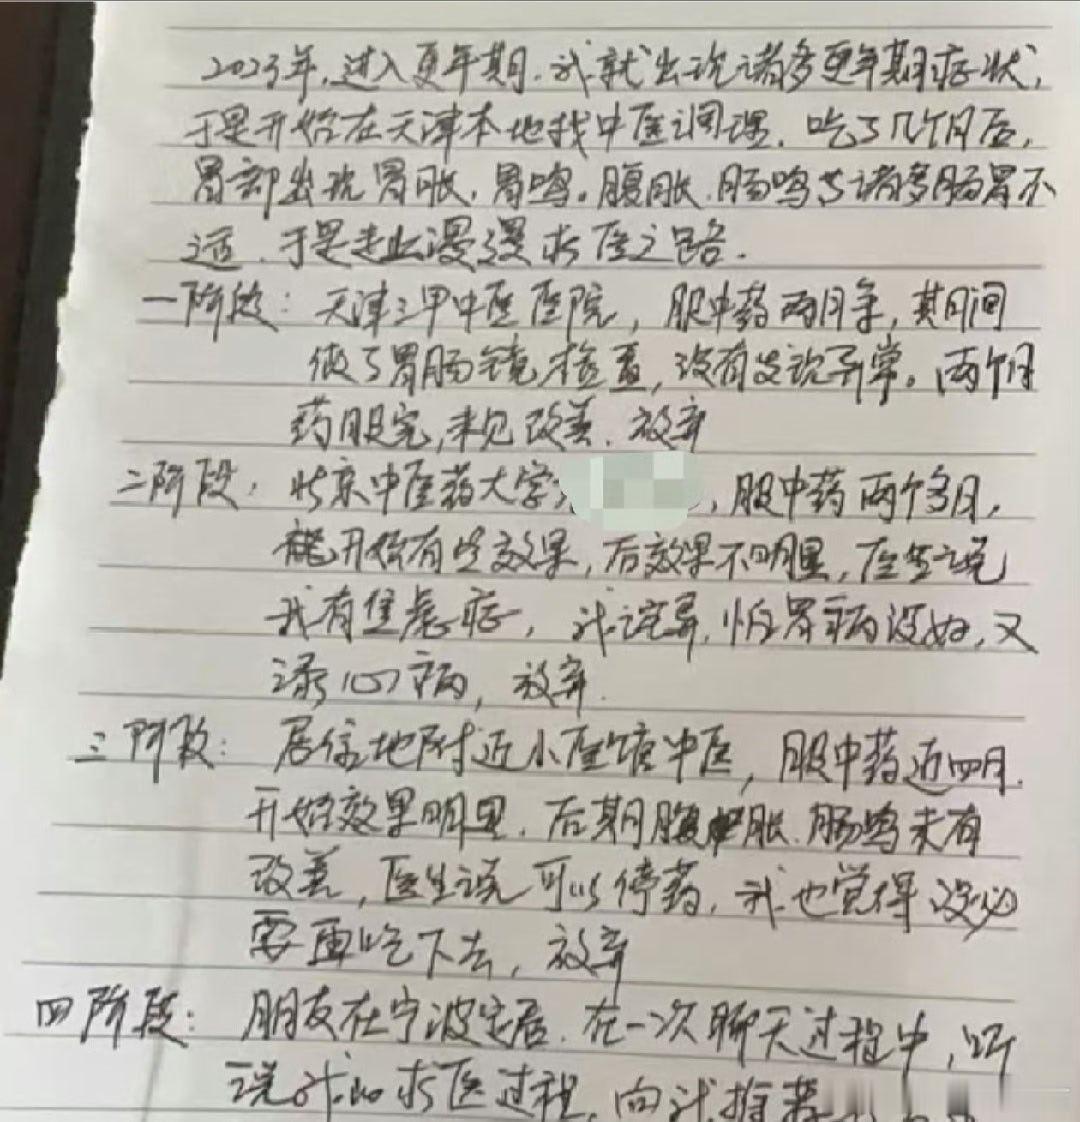 2023年,进入更年期.我就出现诸多更年期症状,
于是开始在天津本地找中医调理.吃了几个月后,
胃部出现胃胀.胃鸣。腹胀.肠鸣等诸多肠胃不
适.于是走上漫漫求医之路.
一阶段:天津三甲中医医院,服中药两月余,其间
做了胃肠镜检查,没有发现异常。两个月
药服完,未见改善.放弃
二阶段:北京中医药大学,服中药两个多月,
开始有些效果,后效果不明显,医生说
我有焦虑症,我诧异,怕胃病没好,又
添心病,放弃.
三阶段:居住地附近小医馆中医,服中药近四月.
开始效果明显.后期腹胀.肠鸣未有
改善,医生说可以停药,我也觉得没必
要再吃下去,放弃
四阶段:朋友在宁波定居.在一次聊天过程中,听
说我的求医过程,向我推荐